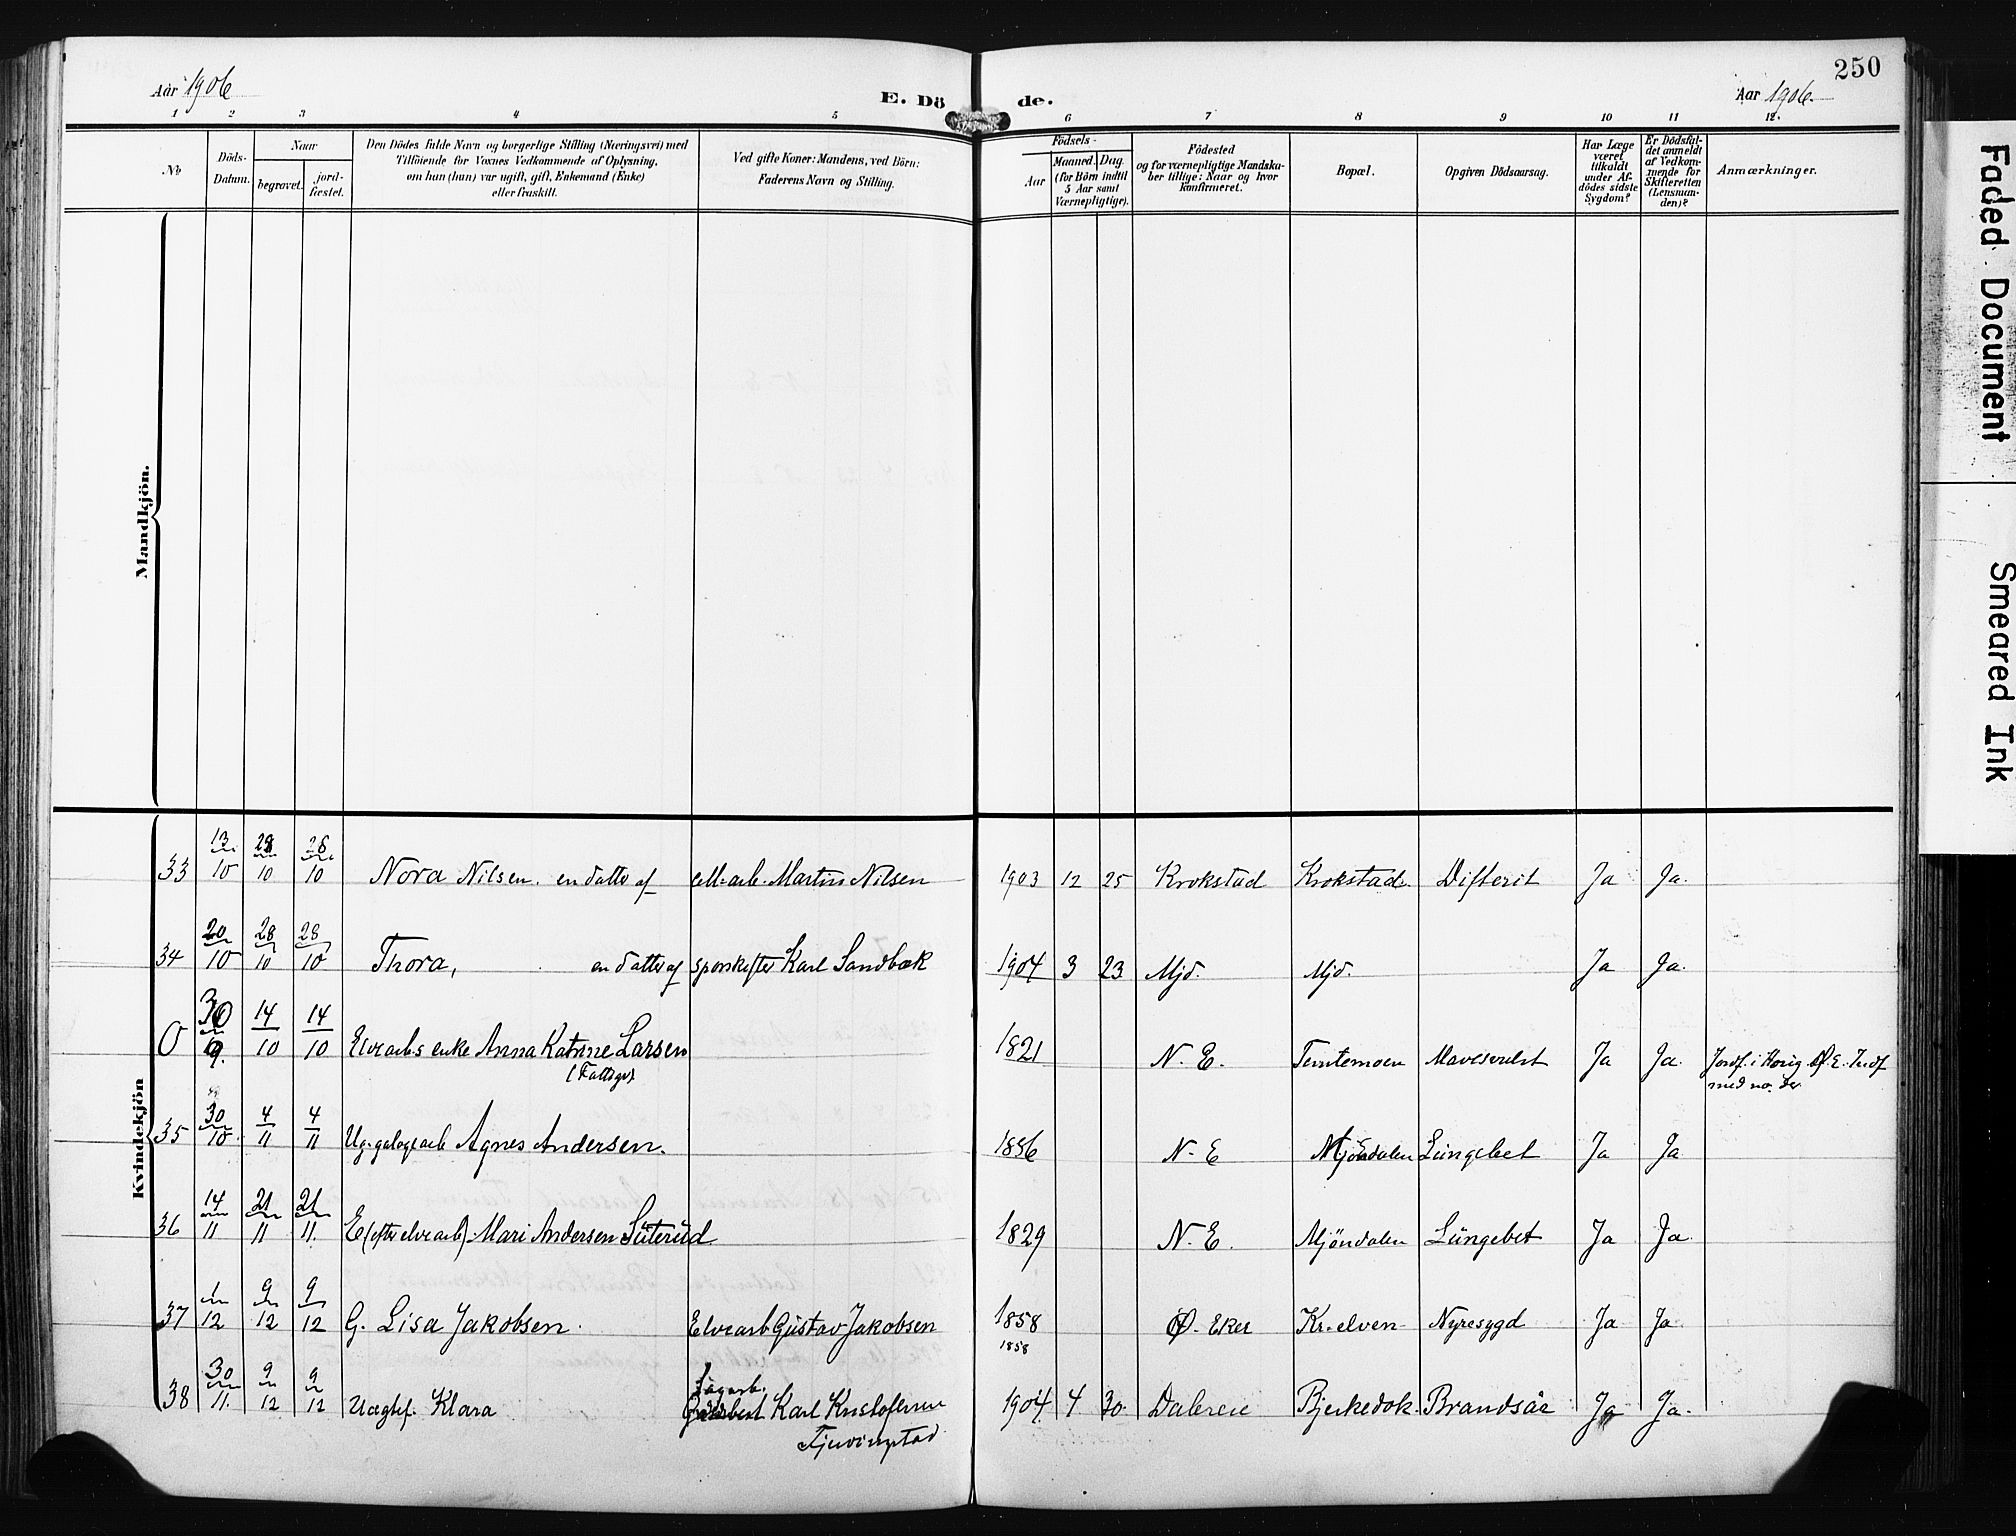 250
Aar 1906
E. Dö de.
Aar 1906.
1 2 3 4 5 6 7 8 9 10 11 12.
No
Döds-Datum.
Naar
begravet.
jord-fæstet.
Den Dödes fulde Navn og borgerlige Stilling (Næringsvei) med
Tilföiende for Voxnes Vedkommende af Oplysning,
om han (hun) var ugift, gift, Enkemand (Enke)
eller fraskilt.
Ved gifte Koner: Mandens, ved Börn:
Faderens Navn og Stilling.
Födsels-
Aar
Maaned. Dag.
(for Börn indtil
5 Aar samt
Værnepligtige).
Födested
og for værnepligtige Mandska-
ber tillige: Naar og hvor
konfirmeret.
Bopæl.
Opgiven Dödsaarsag.
Har Læge
været
tilkaldt
under Af-
dödes sidste
Sygdom?
Er Dödsfal-
det anmeldt
af Vedkom-
mende for
Skifteretten
(Lensman-
den)?
Anmærkninger.
Mandkjön.
Kvindekjön
33 13/10 28/10 28/10 Nora Nilsen. en datter af cell-arb. Martin Nilsen 1903 12 25 Krokstad Krokstad. Difterit Ja Ja.
34 20/10 28/10 28/10 Thora, en datter af sporskifter Karl Sandbæk 1904 3 23 Mjd. Mjd. Ja Ja.
0 30/9. 14/10 14/10 Elvearbs enke Anna Katrine Larsen 1821 N. E. Temtemoen Mavesvulst Ja Ja. Jordf. i Haug Ø. E.
(Fattiggr)
med no. der
35 30/10 4/11 4/11 Ug. Agnes Andersen. 1856 N. E Mjøndalen Lungebet Ja Ja
36 14/11 21/11 21/11. E (efter elvearb) Mari Andersen Süterud 1829 N. E. Mjöndalen Lüngebet Ja Ja.
37 1/12 9/12 9/12 G. Lisa Jakobsen. Elvearb Güstav Jakobsen 1858 Ø. Eker Kr.elven Nyresygd Ja Ja
1858
38 30/11. 9/12 9/12 Uægtef. Klara Karl Kristofersen 1904 4 30. Bjerkedok. Brandsår Ja Ja.
Faded Document
Smeared Ink